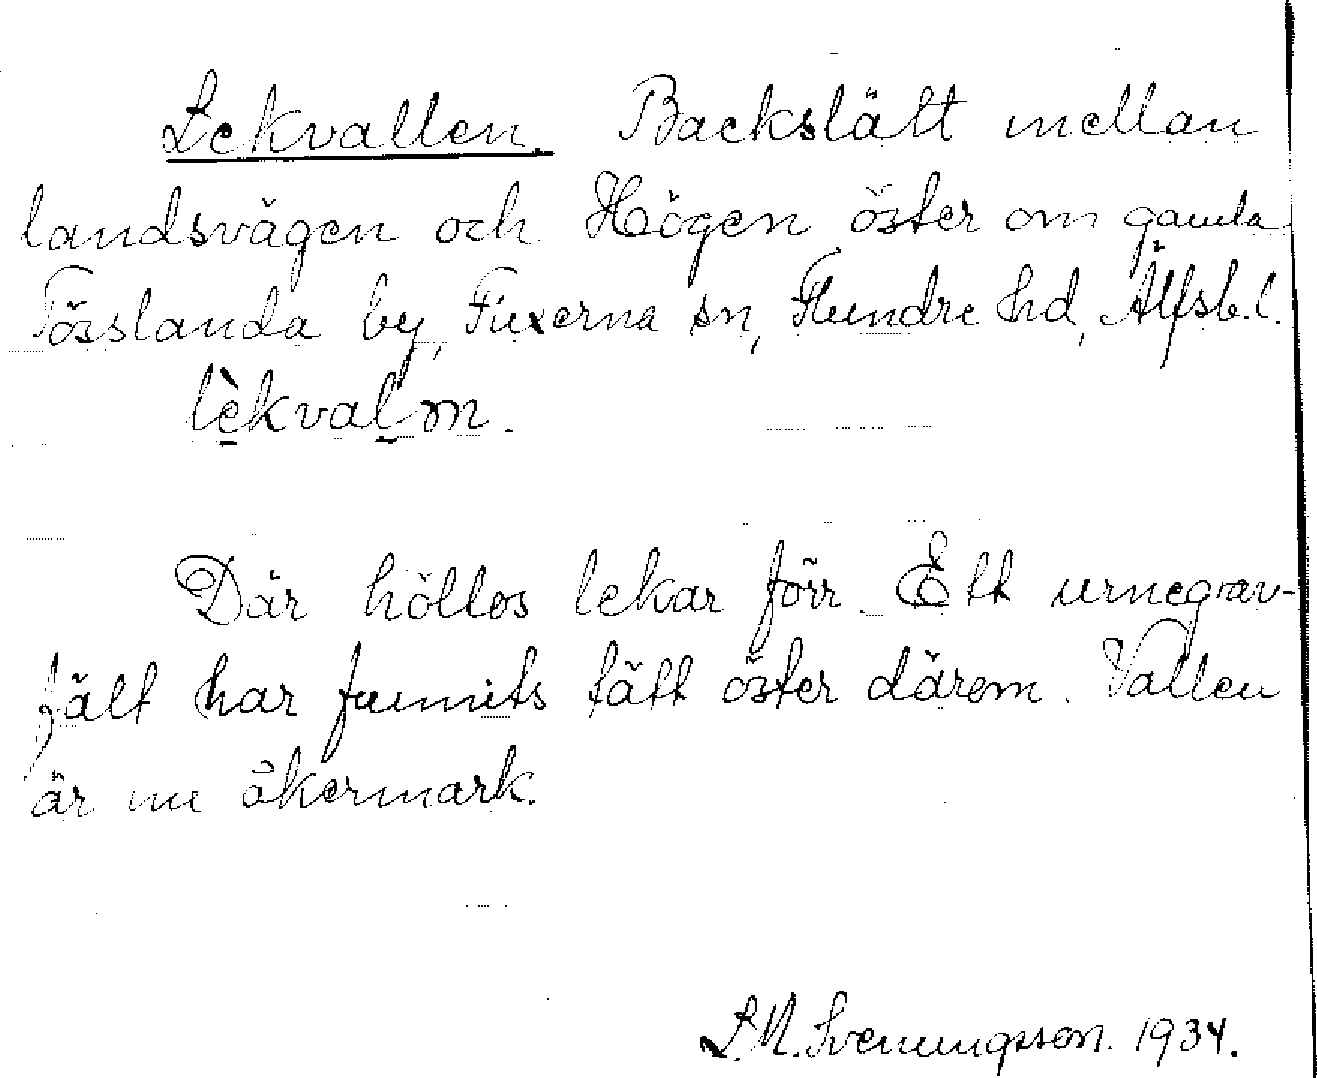 Lekvallen. Backslätt mellan
landsvägen och Högen öster om gamla
Tösslanda by, Fuxerna sn, Flundre hd, Älfsb. l.
lèkvalm.
Där höllos lekar förr. Ett urnegrav-
fält har funnits tätt öster därom. Vallen
är nu åkermark.
S.M. Svenningsson. 1934.